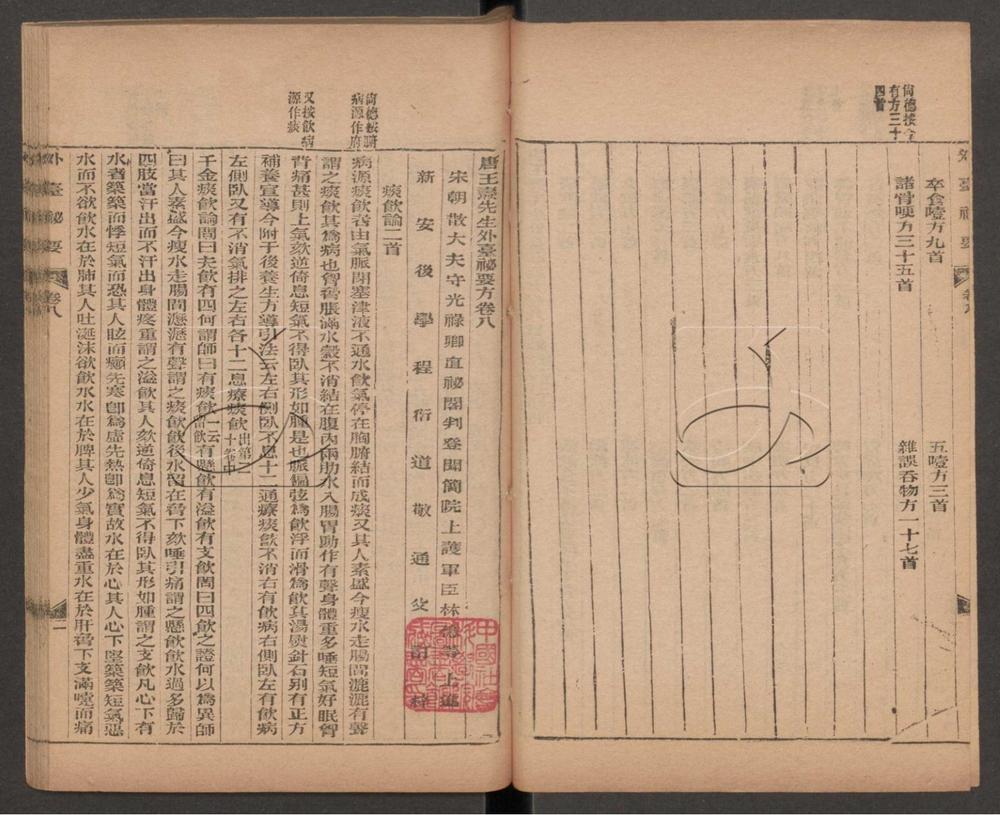 尙德按今
有方三十
四首
外臺祕要
卒食噎方九首
五噎方三首
諸骨哽方三十五首
雜誤吞物方一十七首
唐王燾先生外臺祕要方卷八
宋朝散大夫守光祿卿直祕閣判登聞簡院上護軍臣林億等上進
新安後學程衍道敬通父訂梓
痰飲論二首
尙德按腑
病源作府
病源痰飲者由氣脈閉塞津液不通水飲氣停在胸腑結而成痰又其人素盛今瘦水走腸間漉漉有聲
謂之痰飲其爲病也胷脅脹滿水穀不消結在腹內兩肋水入腸胃動作有聲身體重多唾短氣好眠胷
又按飲病
源作痰
背痛甚則上氣欬逆倚息短氣不得臥其形如腫是也脈偏弦爲飲浮而滑爲飲其湯熨針石別有正方
補養宣導今附于後養生方導引法云左右側臥不息十二通療痰飲不消右有飲病右側臥左有飲病
左側臥又有不消氣排之左右各十二息療痰飲出第二十卷中
千金痰飲論問曰夫飲有四何謂師曰有痰飲一云飲有懸飲有溢飲有支飲問曰四飲之證何以爲異師
曰其人素盛今瘦水走腸間漉漉有聲謂之痰飲飲後水留在脅下欬唾引痛謂之懸飲飲水過多歸於
四肢當汗出而不汗出身體疼重謂之溢飲其人欬逆倚息短氣不得臥其形如腫謂之支飲凡心下有
水者築築而悸短氣而恐其人眩而癲先寒卽爲虛先熱卽爲實故水在於心其人心下堅築築短氣惡
水而不欲飲水在於肺其人吐涎沫欲飲水水在於脾其人少氣身體盡重水在於肝脅下支滿嚏而痛
外臺祕要
卷八
二